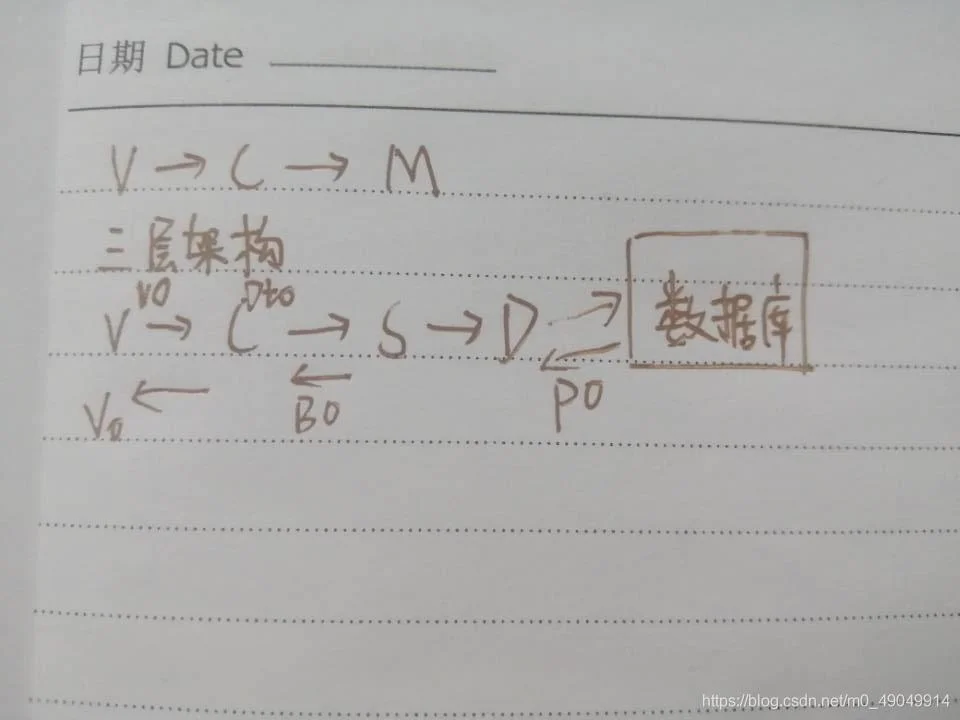 日期 Date
V → C → M
三层架构
VO Dto
V → C → S → D 数据库
Vo ← ← BO PO
https://blog.csdn.net/m0_49049914